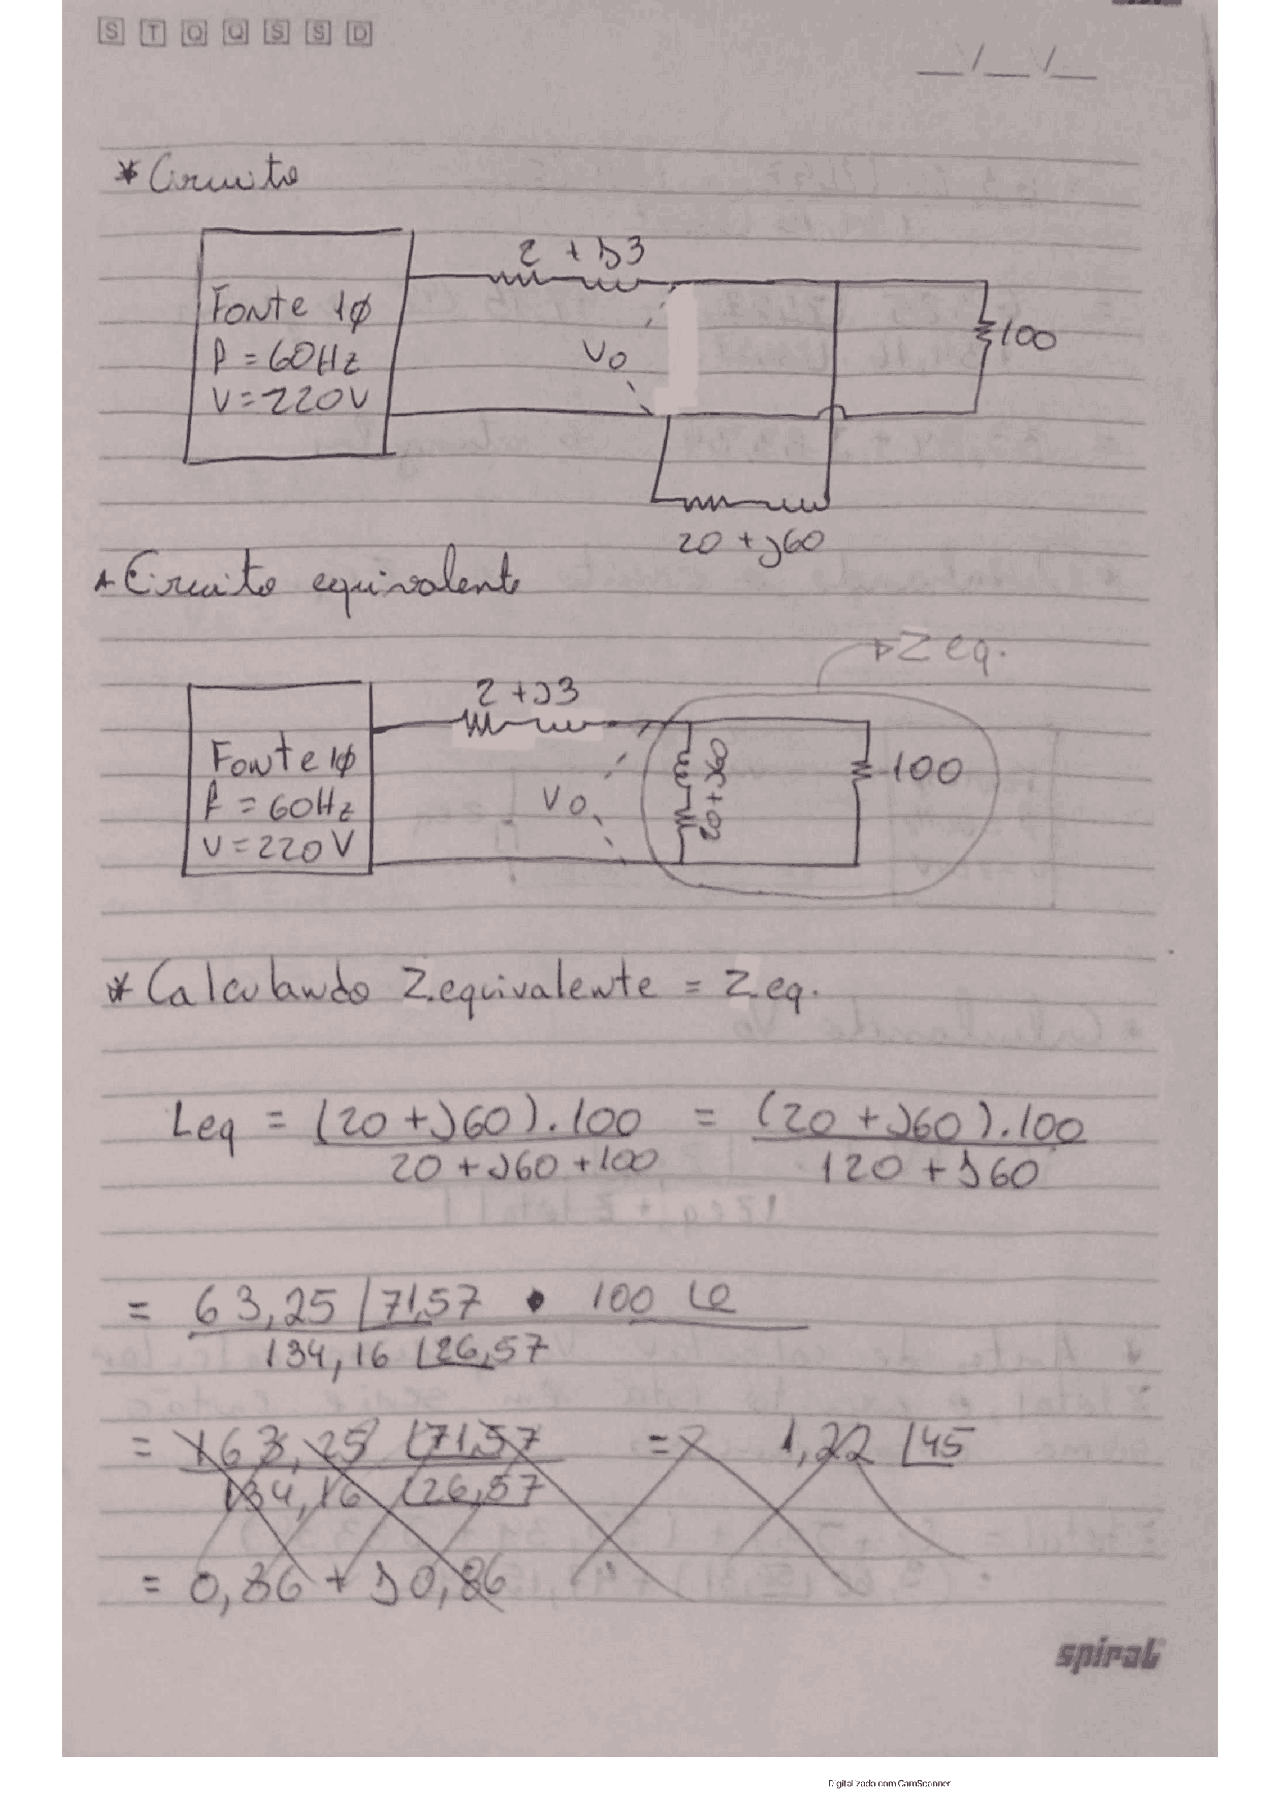 S T Q Q S S D
__/__/__
* Circuito
2 + j3
Fonte 1ϕ
f = 60Hz
V = 220V
Vo
100
20 + j60
* Circuito equivalente
Zeq.
2 + j3
Fonte 1ϕ
f = 60Hz
V = 220V
Vo
20 + j60
100
* Calculando Z.equivalente = Zeq.
Zeq = (20 + j60) . 100 = (20 + j60) . 100
20 + j60 + 100 120 + j60
= 63,25 ∠71,57 • 100 ∠0
134,16 ∠26,57
= 163,25 ∠71,57 = 1,22 ∠45
134,16 ∠26,57
= 0,86 + j0,86
spiral
Digitalizado com CamScanner